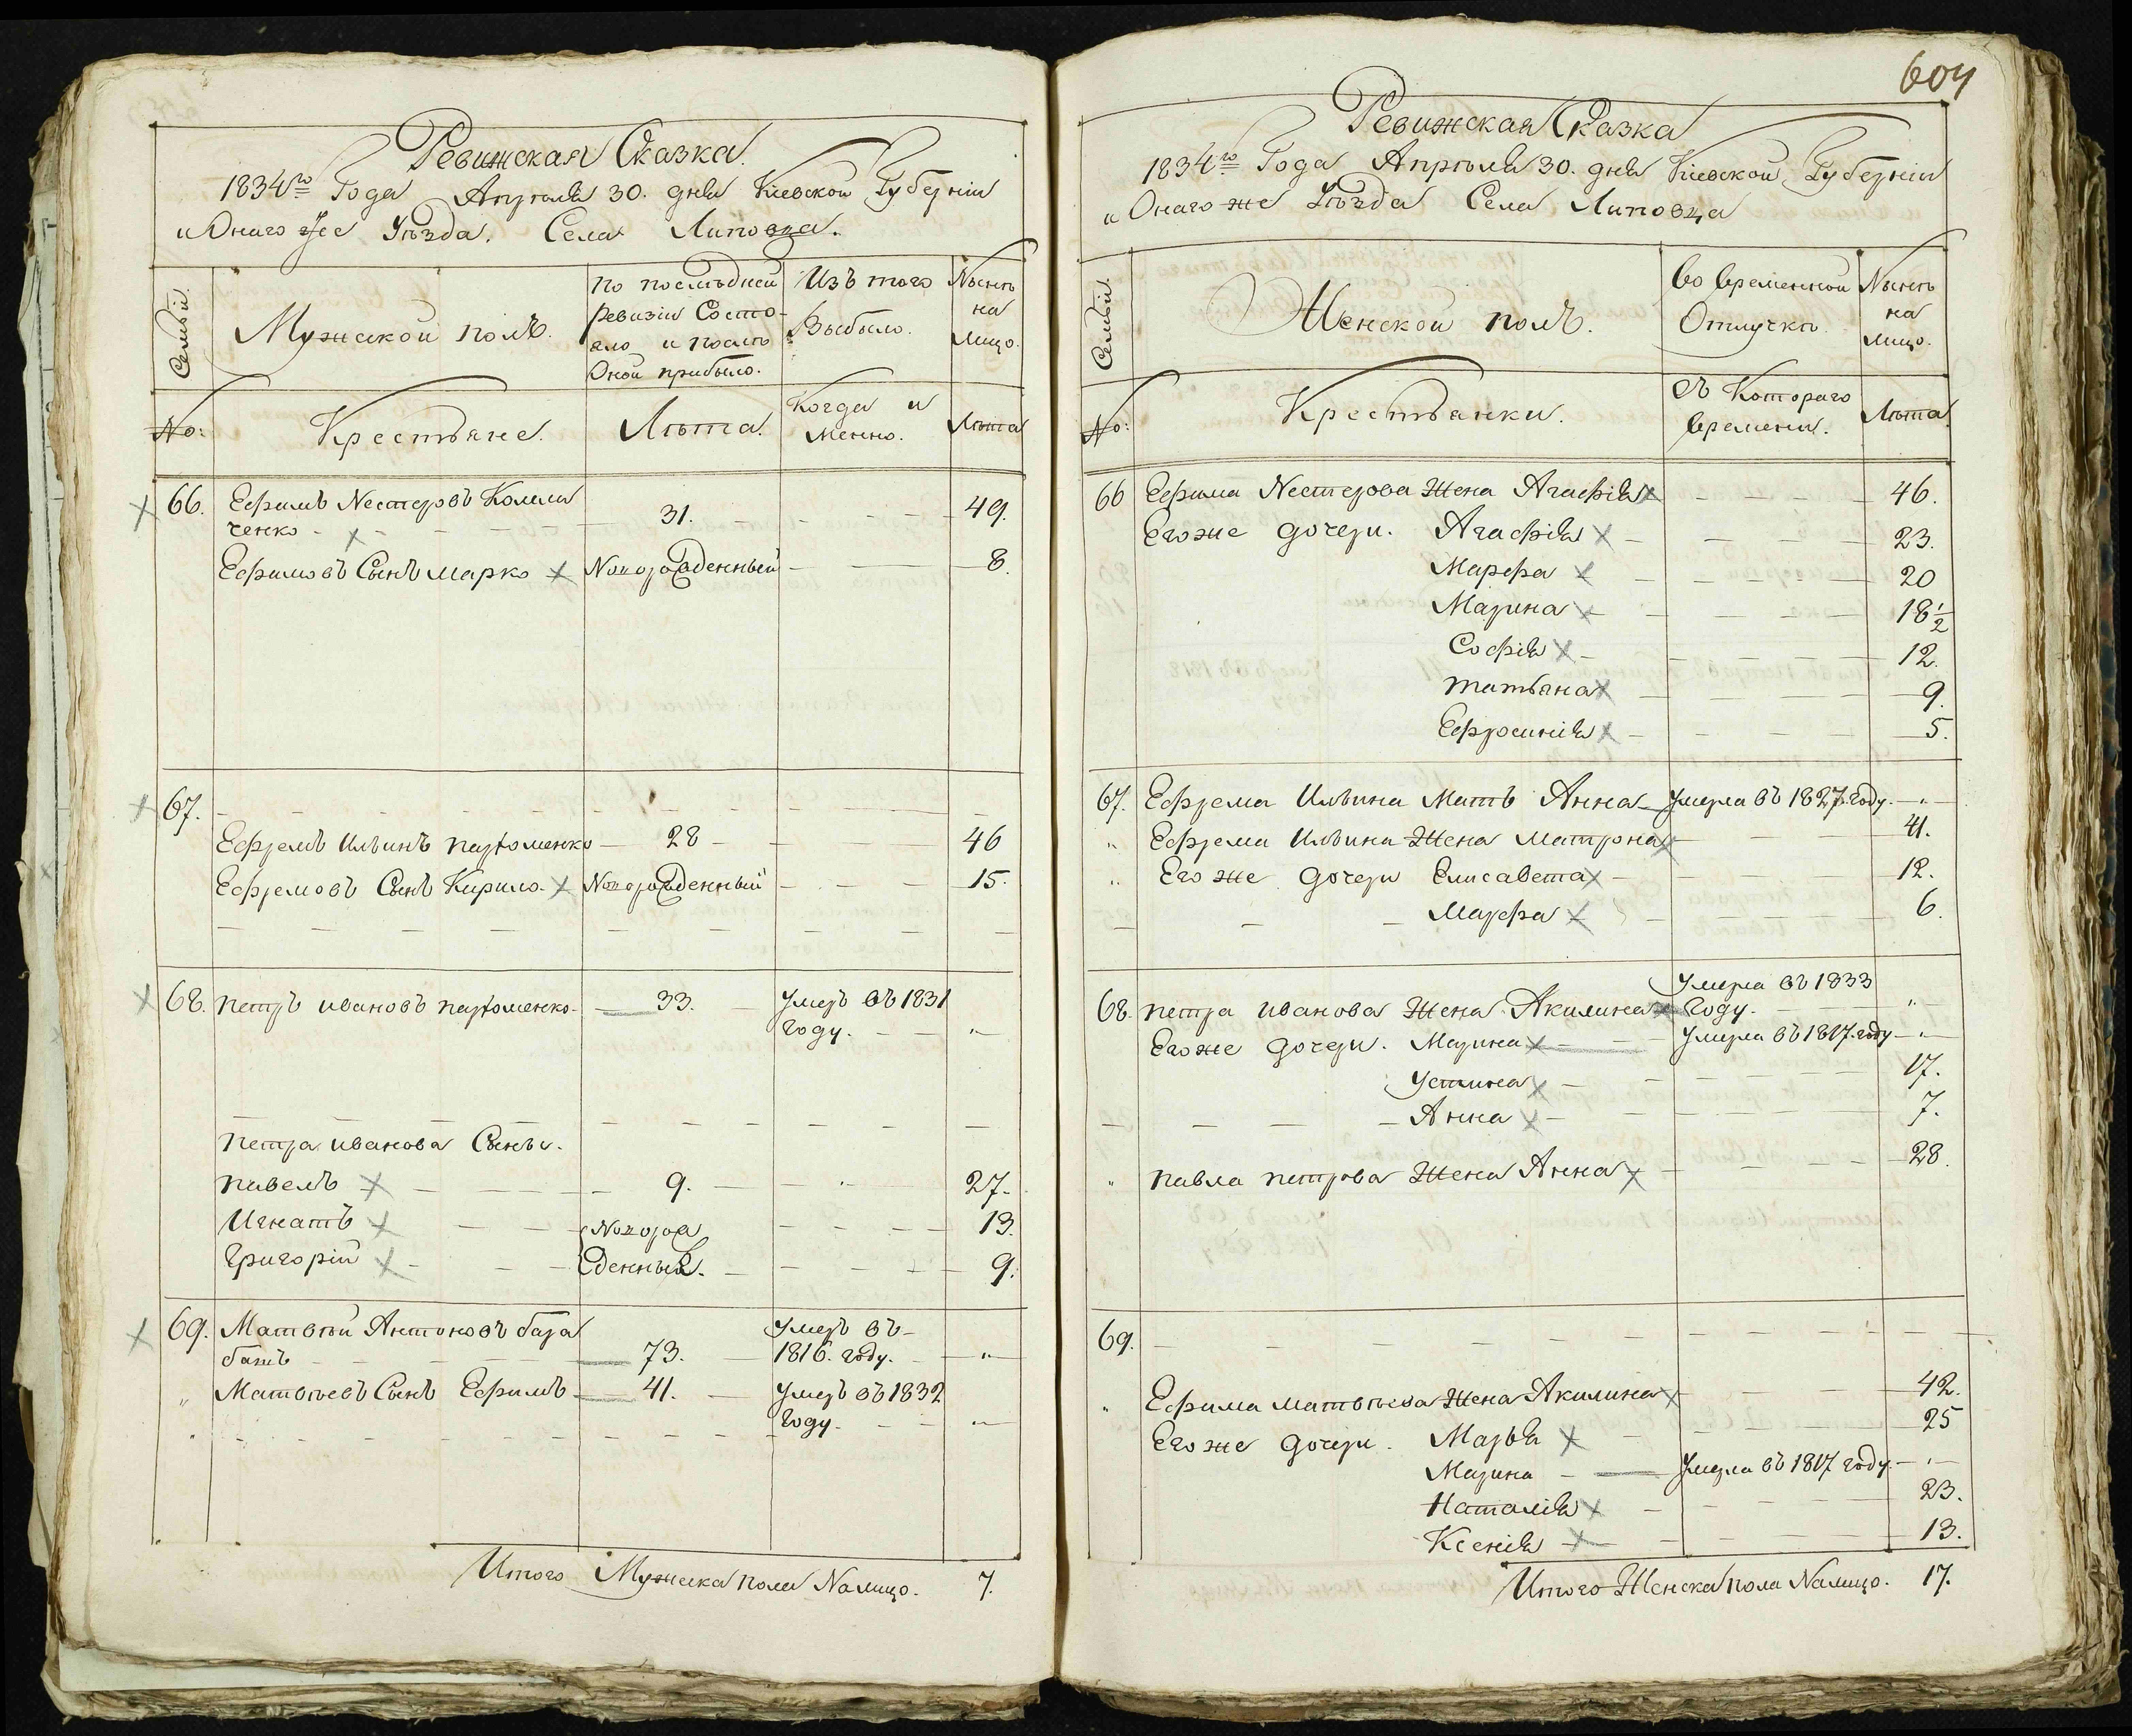 Ревижская Сказка.
1834го Года Апрѣля 30. дня Киевской Губерніи
и Онаго же Уѣзда. Села Липовца.
Семьи. Мужской полъ. по послѣдней Изъ того Нынѣ
ревизіи Состо- Выбыло. на
яло и послѣ лицо.
Оной прибыло.
No: Крестьяне. Лѣта. Когда и Лѣта
менно.
66. Ефимъ Нестеровъ Коломи
ченко 31. 49.
Ефимовъ Сынъ Марко Новорожденный 8.
67.
Ефремъ Ильинъ Пархоменко 28 46
Ефремовъ Сынъ Кирило Новорожденный 15.
68. Петръ Ивановъ Пархоменко. 33. Умеръ въ 1831
году. "
Петра Иванова Сыны.
Павелъ 9. 27.
Игнатъ Новоро 13.
Григорій жденный. 9.
69. Матвѣй Антоновъ бара Умеръ въ
башъ 73. 1816. году. "
" Матвѣевъ Сынъ Ефимъ 41. Умеръ въ 1832
году. "
Итого Мужеска пола Налицо. 7.
604
Ревижская Сказка
1834го Года Апрѣля 30. дня Кіевской Губерніи
и Онаго же Уѣзда Села Липовца
Семьи. Женской полъ. Во временной Нынѣ
Отлучкѣ. на
лицо.
No: Крестьянки. Съ Котораго Лѣта
времени.
66 Ефима Нестерова Жена Агафія 46.
Егоже дочери. Агафія 23.
Марфа 20
Марина 18 1/2
Софія 12.
Татьяна 9.
Ефросинія 5.
67. Ефрема Ильина Мать Анна Умерла въ 1827. году. "
" Ефрема Ильина Жена Матрона 41.
" Его же дочери Елисавета 12.
Марфа 6.
Умерла въ 1833
68. Петра Иванова Жена Акилина году. "
Егоже дочери. Марина Умерла въ 1817. году "
Устина 17.
Анна 7.
" Павла Петрова Жена Анна 28.
69.
" Ефима Матвѣева Жена Акилина 42.
Его же дочери. Марья 25
Марина Умерла въ 1817 году. "
Наталія 23.
Ксенія 13.
Итого Женска пола Налицо. 17.